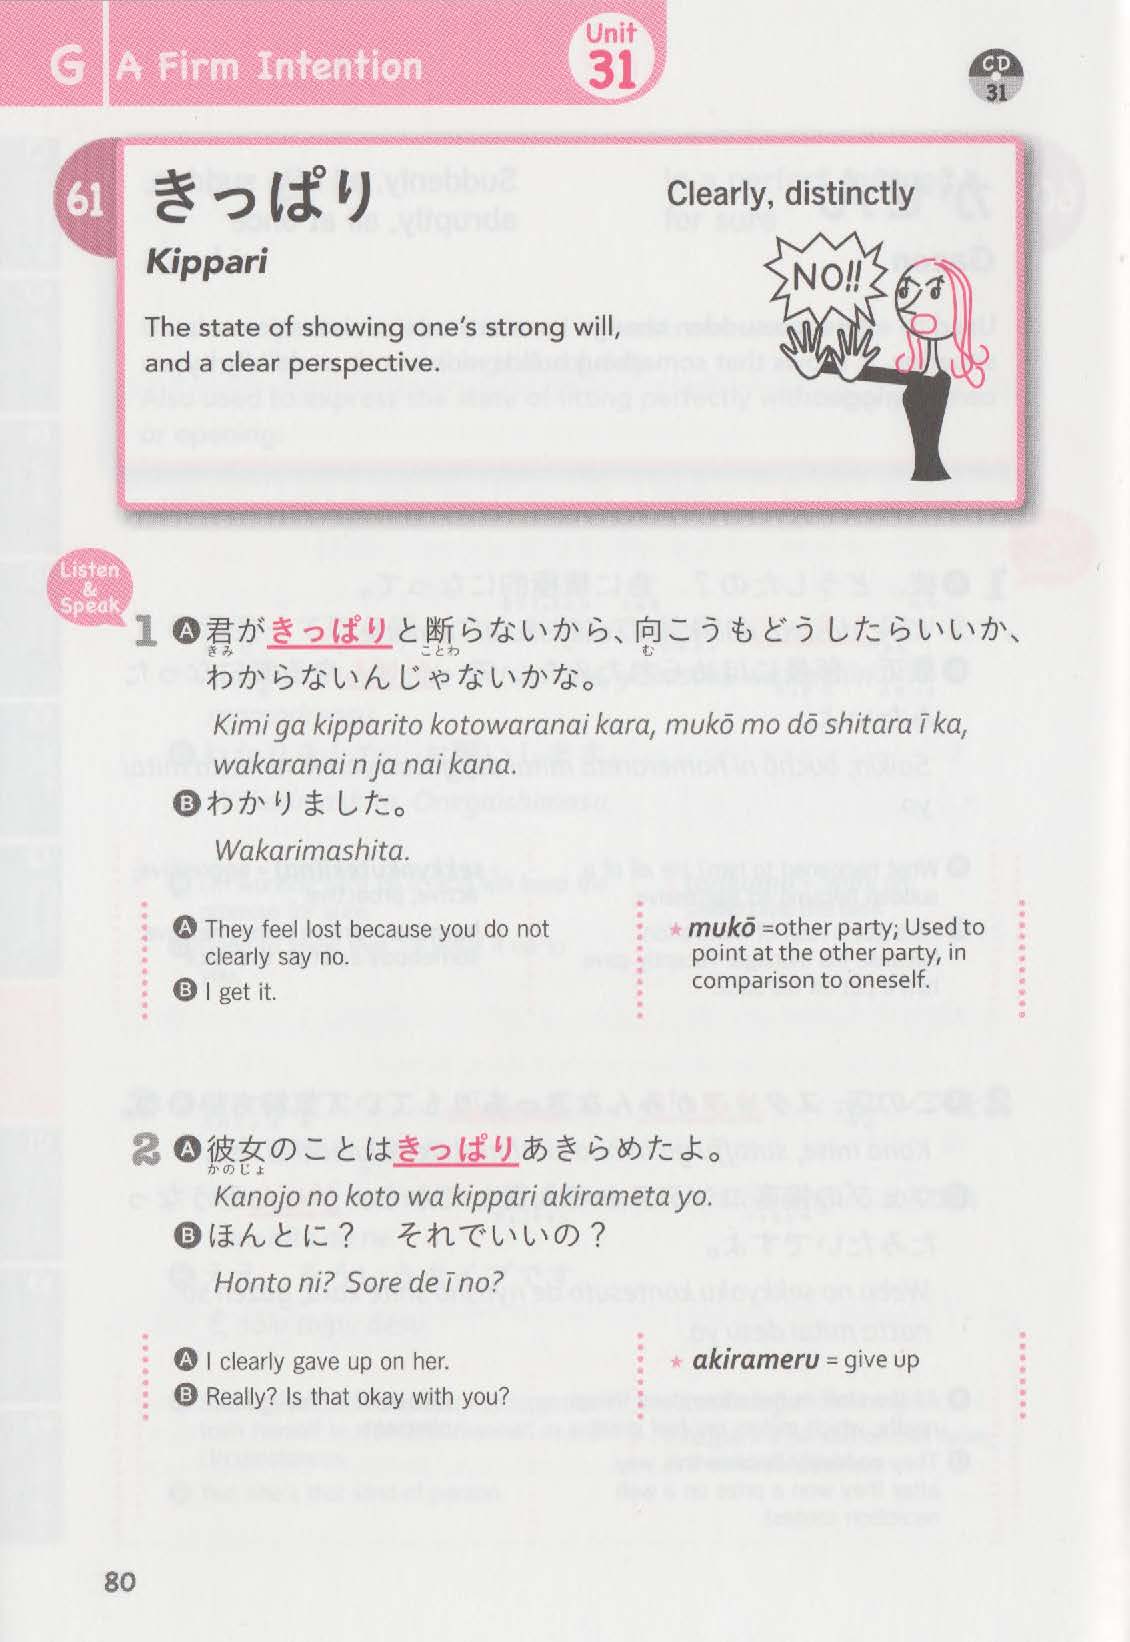 G A Firm Intention
Unit
31
CD
31
61
きっぱり
Clearly, distinctly
Kippari
NO!!
The state of showing one's strong will,
and a clear perspective.
Listen
&
Speak
1 A 君がきっぱりと断らないから、向こうもどうしたらいいか、
きみ ことわ む
わからないんじゃないかな。
Kimi ga kipparito kotowaranai kara, mukō mo dō shitara ī ka,
wakaranai n ja nai kana.
B わかりました。
Wakarimashita.
A They feel lost because you do not
clearly say no.
B I get it.
★ mukō =other party; Used to
point at the other party, in
comparison to oneself.
2 A 彼女のことはきっぱりあきらめたよ。
かのじょ
Kanojo no koto wa kippari akirameta yo.
B ほんとに？　それでいいの？
Honto ni? Sore de ī no?
A I clearly gave up on her.
B Really? Is that okay with you?
★ akirameru = give up
80